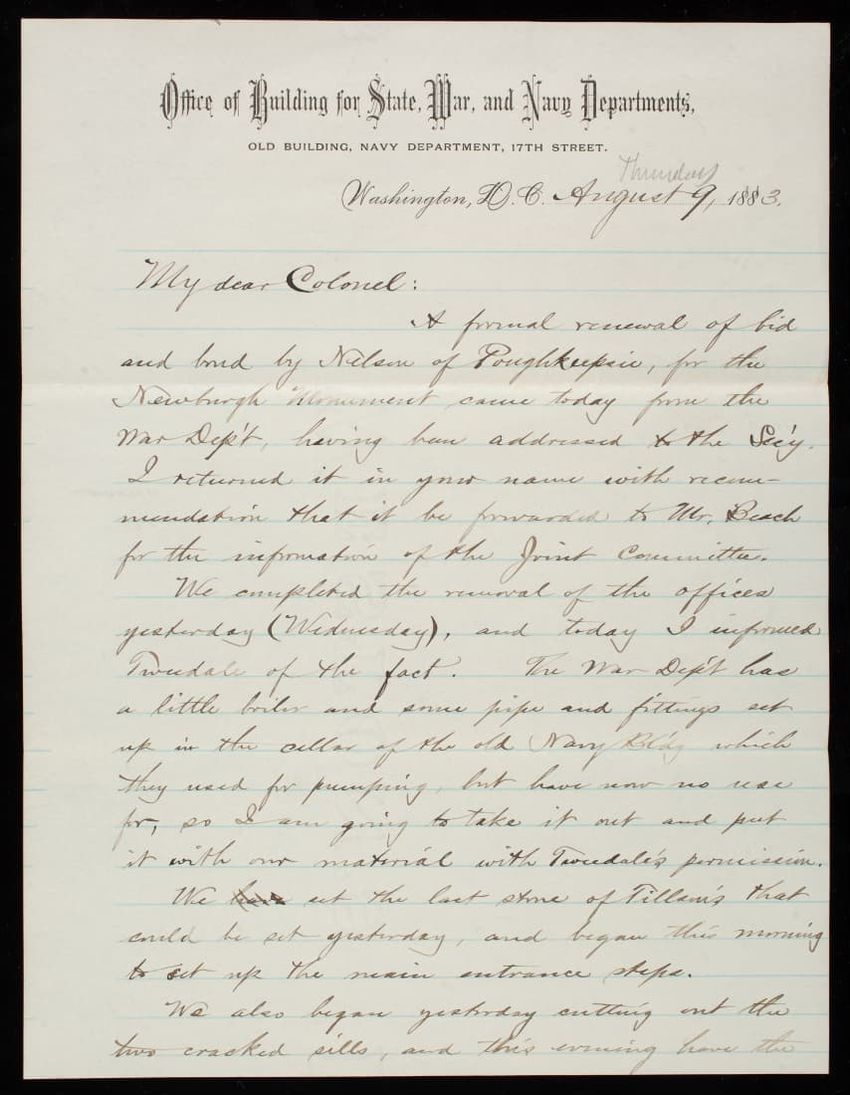 Office of Building for State, War, and Navy Departments,
OLD BUILDING, NAVY DEPARTMENT, 17TH STREET.
Thursday
Washington, D. C. August 9, 1883.
My dear Colonel:
A formal renewal of bid
and bond by Nelson of Poughkeepsie, for the
Newburgh Monument came today from the
War Dep't, having been addressed to the Sec'y.
I returned it in your name with recom-
mendation that it be forwarded to Mr. Beach
for the information of the Joint Committee.
We completed the removal of the offices
yesterday (Wednesday), and today I informed
Tweedale of the fact. The War Dep't has
a little boiler and some pipe and fittings set
up in the cellar of the old Navy Bldg which
they used for pumping, but have now no use
for, so I am going to take it out and put
it with our material with Tweedale's permission.
We have set the last stone of Tillson's that
could be set yesterday, and began this morning
to set up the main entrance steps.
We also began yesterday cutting out the
two cracked sills, and this evening have the